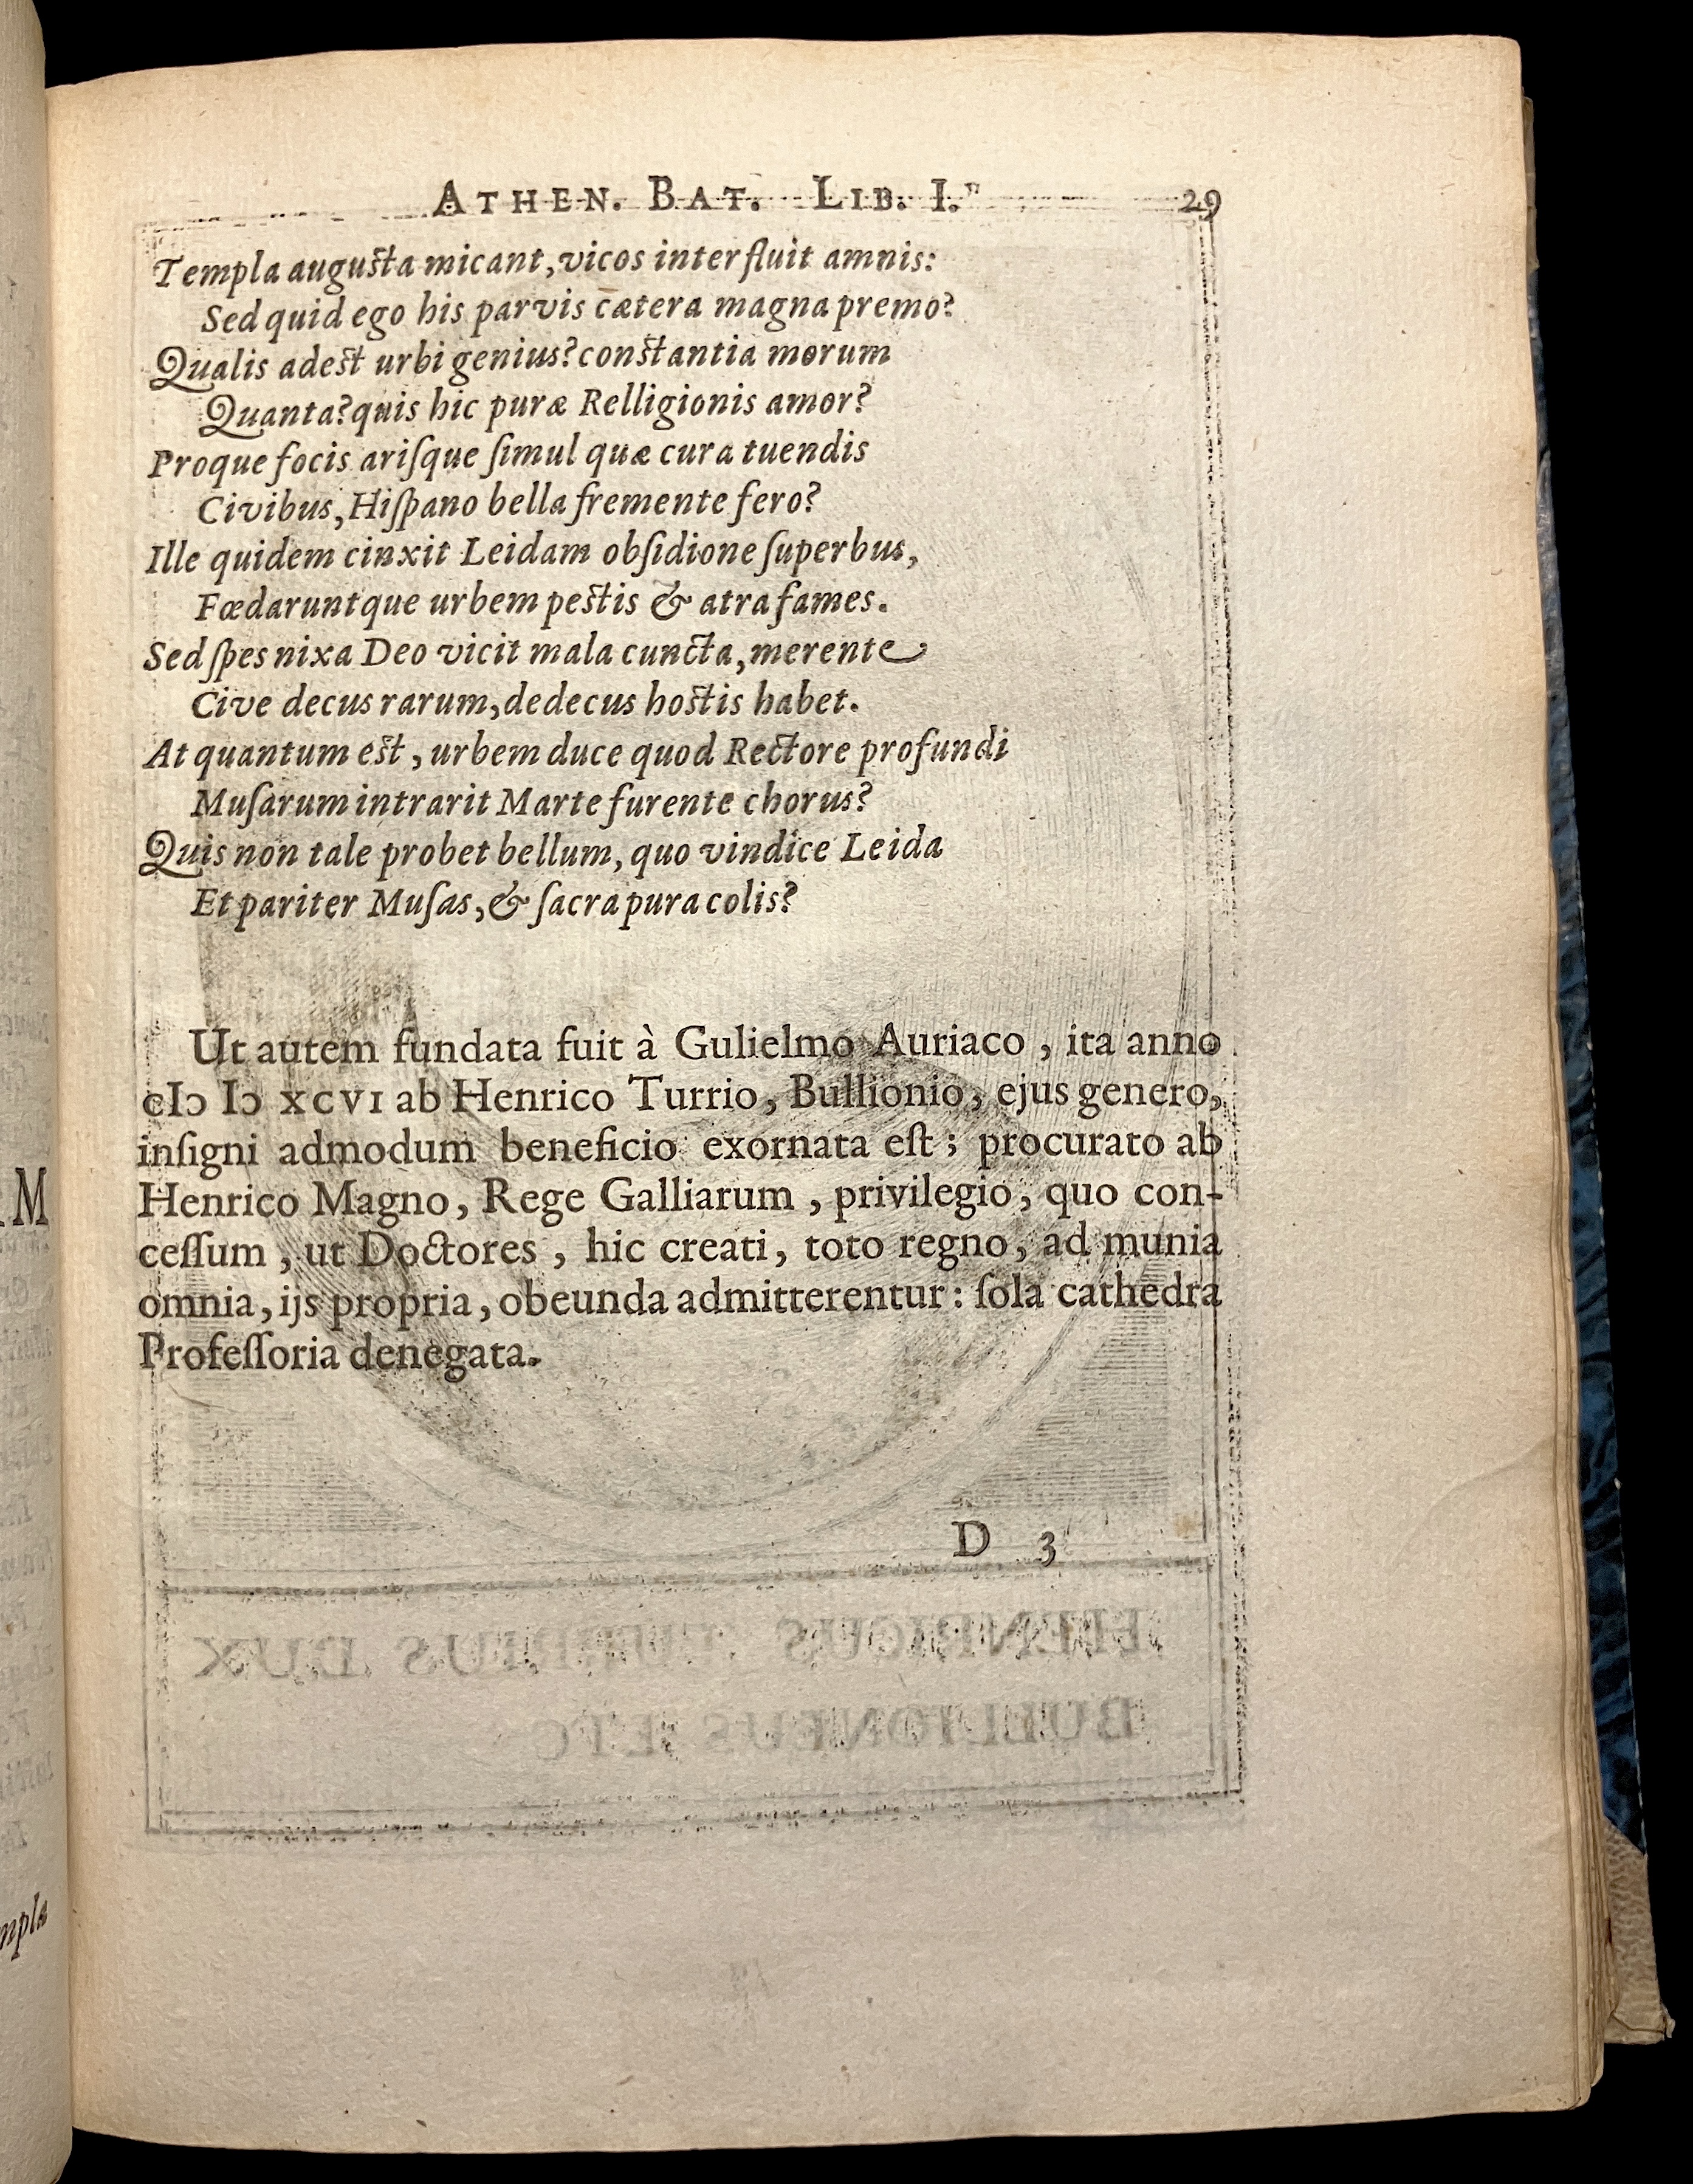 ATHEN. BAT. LIB. I. 29
Templa augusta micant, vicos interfluit amnis:
Sed quid ego his parvis cætera magna premo?
Qualis adest urbi genius? constantia morum
Quanta? quis hic puræ Relligionis amor?
Proque focis ariſque ſimul quæ cura tuendis
Civibus, Hiſpano bella fremente fero?
Ille quidem cinxit Leidam obſidione ſuperbus,
Fœdaruntque urbem pestis & atra fames.
Sed ſpes nixa Deo vicit mala cuncta, merente
Cive decus rarum, dedecus hostis habet.
At quantum est, urbem duce quod Rectore profundi
Muſarum intrarit Marte furente chorus?
Quis non tale probet bellum, quo vindice Leida
Et pariter Muſas, & ſacra pura colis?
Ut autem fundata fuit à Gulielmo Auriaco, ita anno
cIↄ Iↄ XCVI ab Henrico Turrio, Bullionio, ejus genero,
inſigni admodum beneficio exornata eſt; procurato ab
Henrico Magno, Rege Galliarum, privilegio, quo con-
ceſſum, ut Doctores, hic creati, toto regno, ad munia
omnia, ijs propria, obeunda admitterentur: ſola cathedra
Profeſſoria denegata.
D 3
HENRICUS TURRIUS DUX
BULLIONEUS ETC
M
mpla